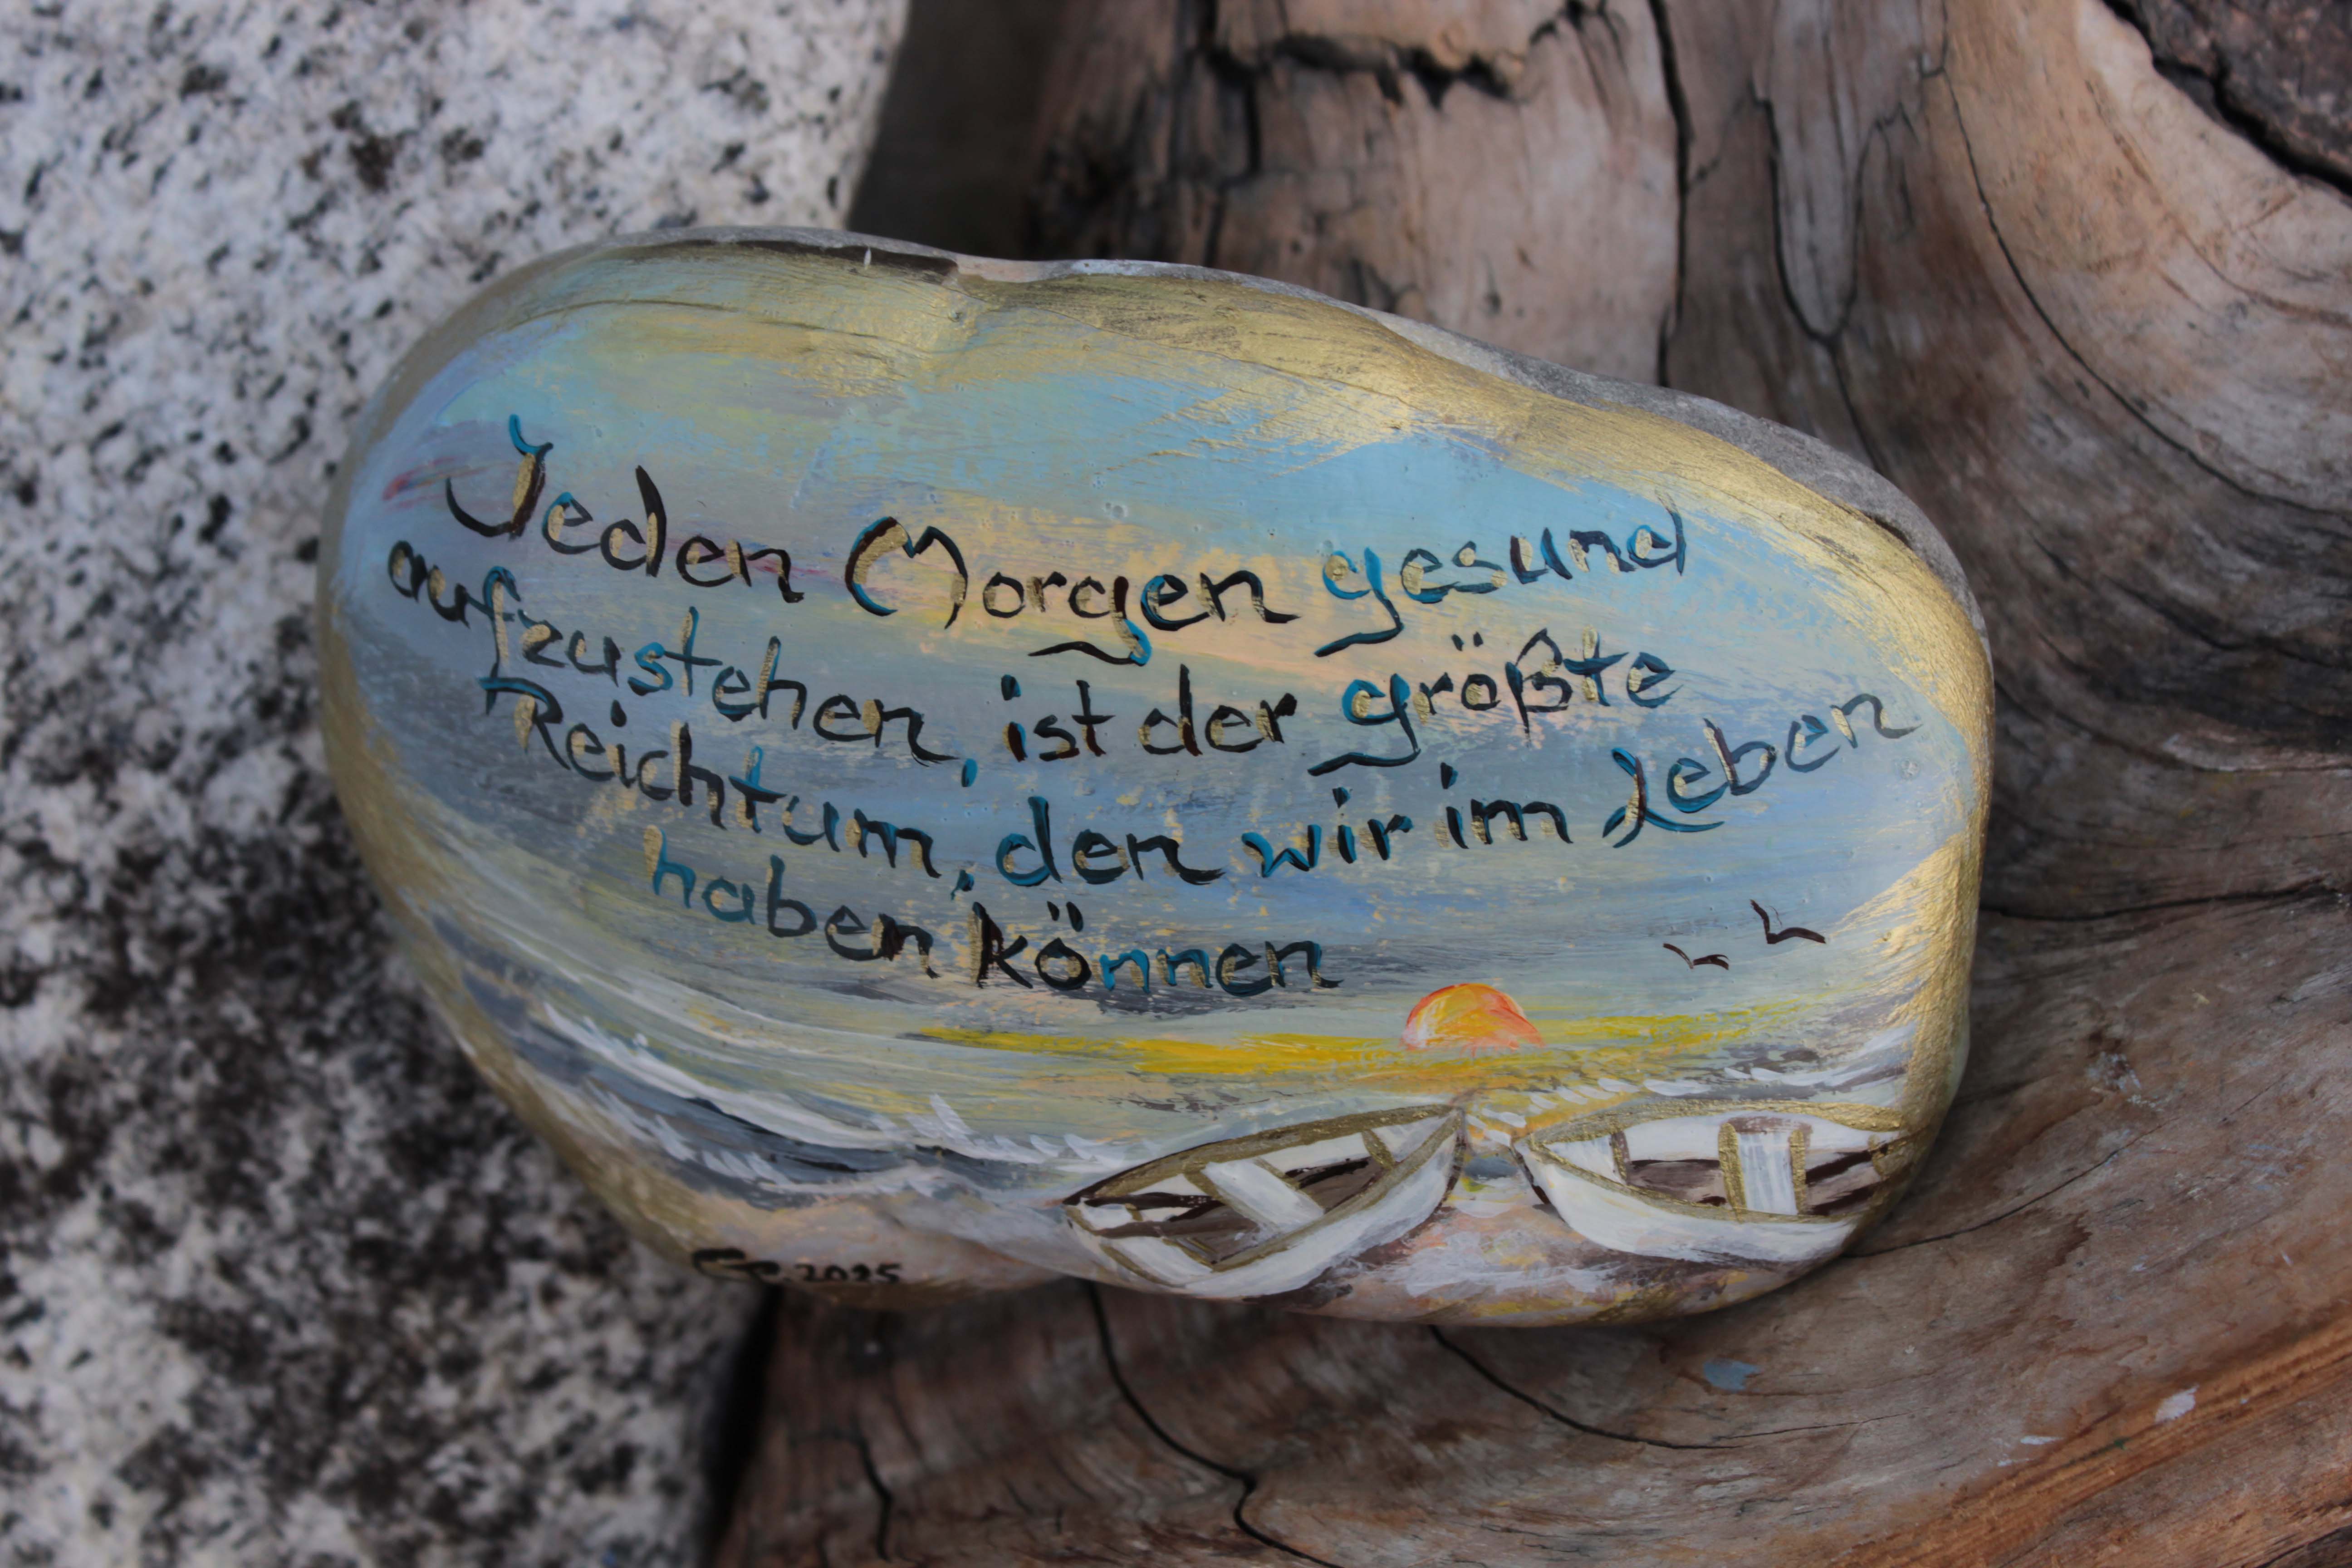 Jeden Morgen gesund
aufzustehen, ist der größte
Reichtum, den wir im Leben
haben können
2025